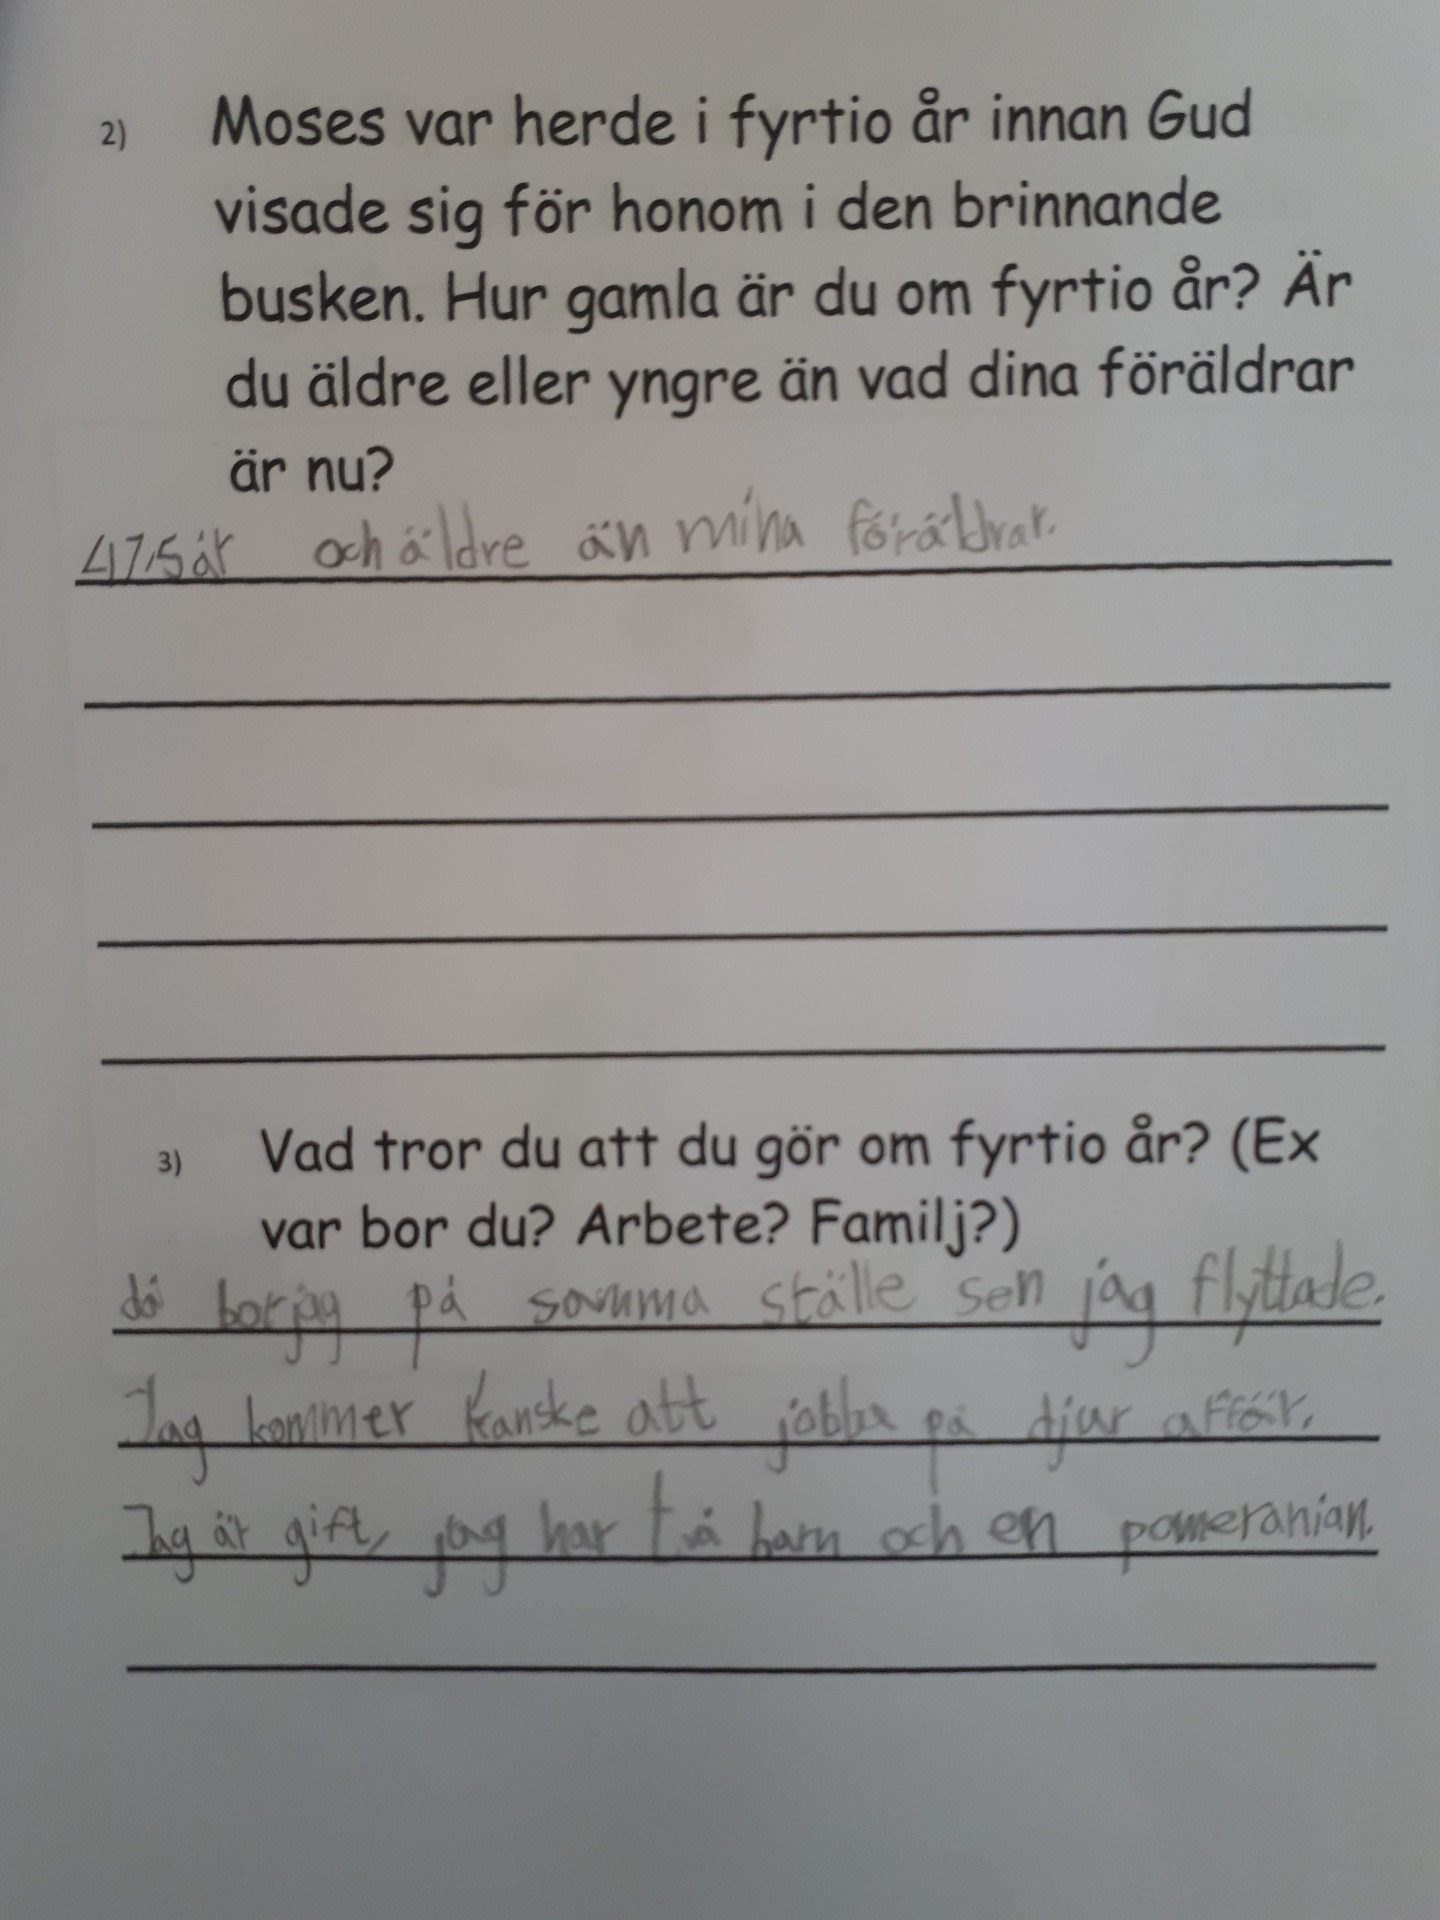 2) Moses var herde i fyrtio år innan Gud
visade sig för honom i den brinnande
busken. Hur gamla är du om fyrtio år? Är
du äldre eller yngre än vad dina föräldrar
är nu?
47,5 år och äldre än mina föräldrar.
3) Vad tror du att du gör om fyrtio år? (Ex
var bor du? Arbete? Familj?)
då bor jag på samma ställe sen jag flyttade.
Jag kommer kanske att jobba på djur affär.
Jag är gift, jag har två barn och en pomeranian.